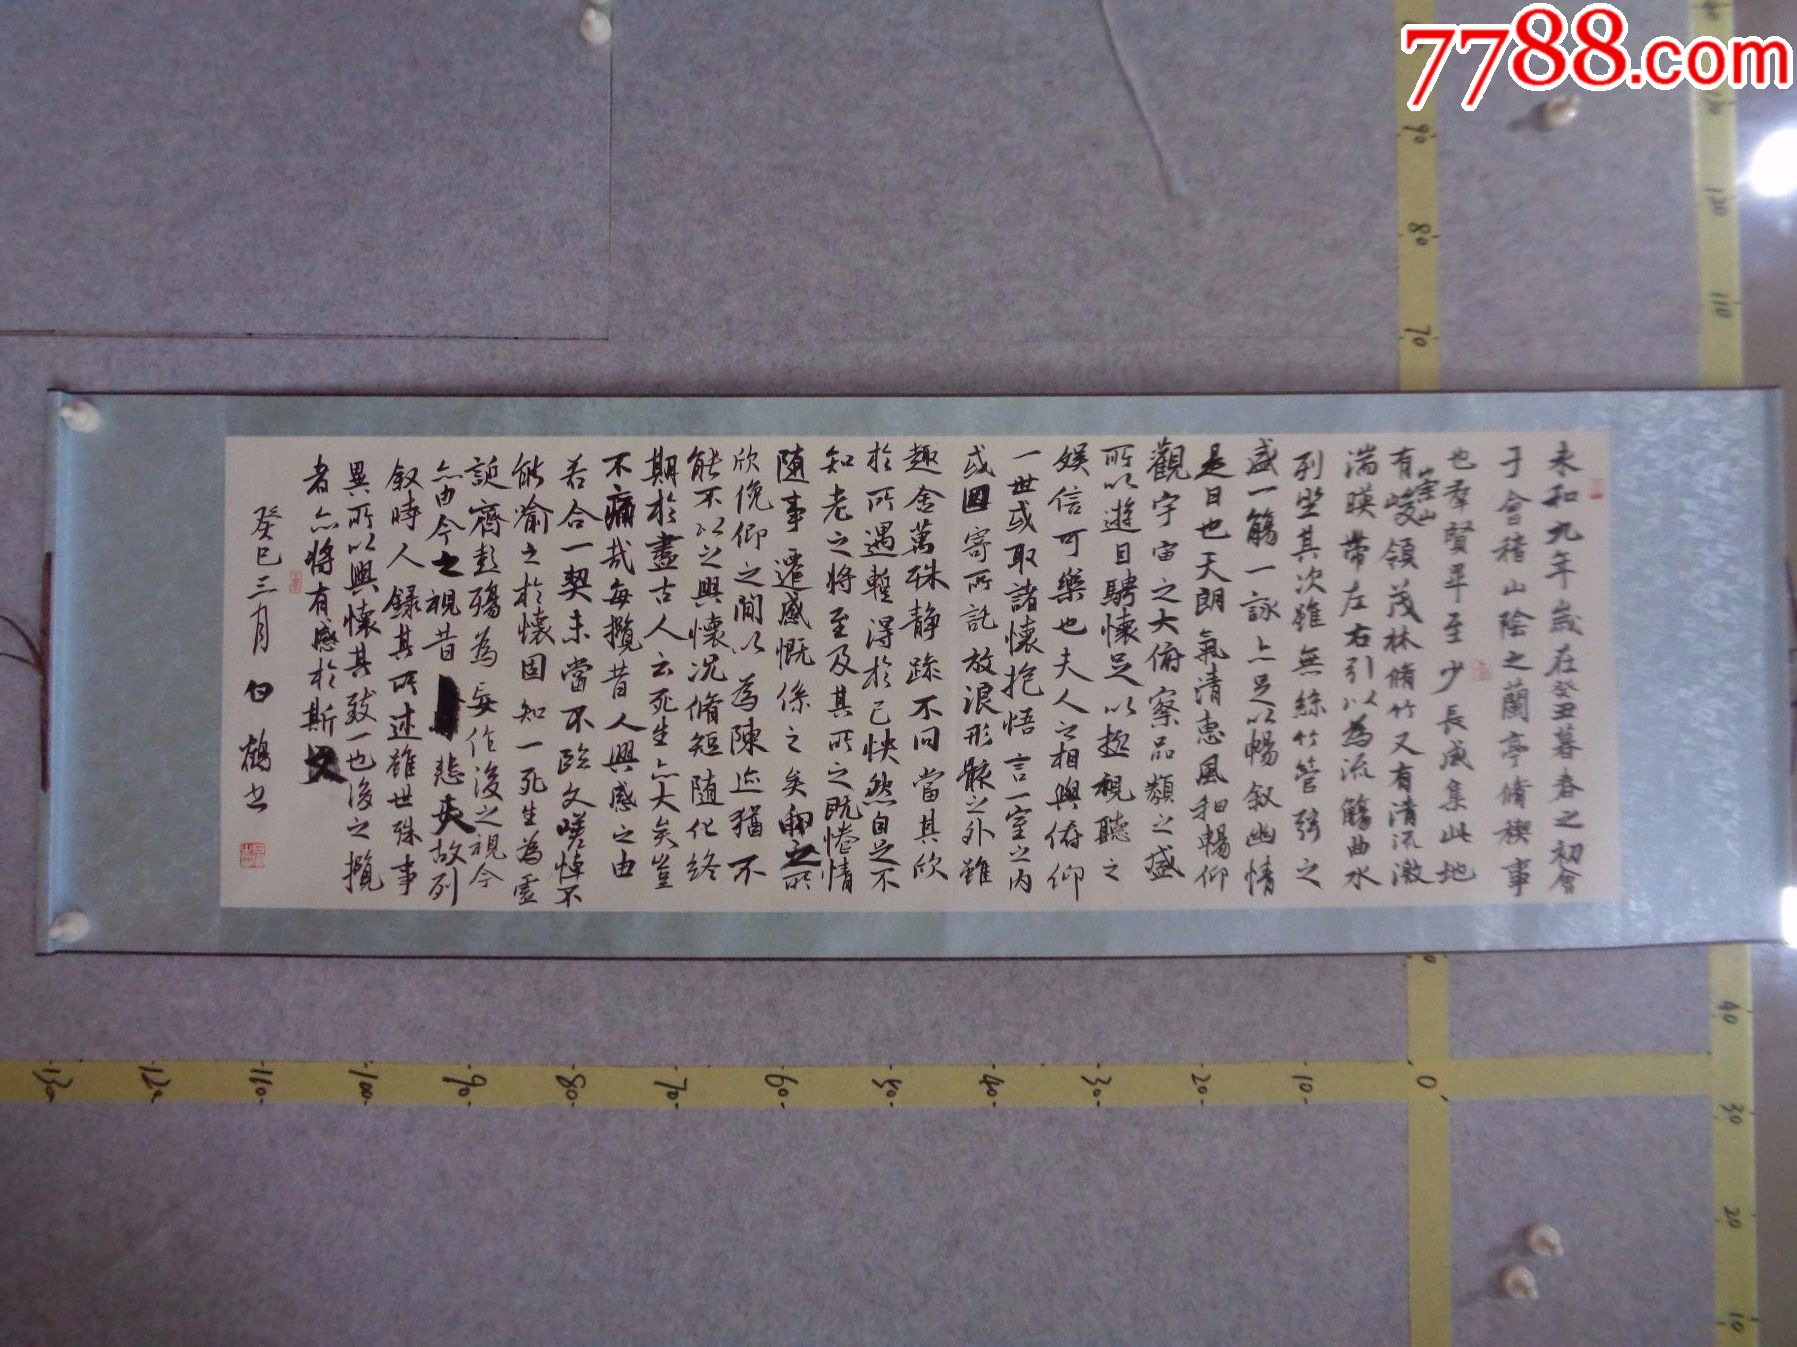 永和九年歲在癸丑暮春之初會
于會稽山陰之蘭亭脩稧事
也羣賢畢至少長咸集此地
有崇山峻領茂林脩竹又有清流激
湍暎帶左右引以為流觴曲水
列坐其次雖無絲竹管弦之
盛一觴一詠亦足以暢叙幽情
是日也天朗氣清惠風和暢仰
觀宇宙之大俯察品類之盛
所以遊目騁懷足以極視聽之
娛信可樂也夫人之相與俯仰
一世或取諸懷抱悟言一室之內
或因寄所託放浪形骸之外雖
趣舍萬殊静躁不同當其欣
於所遇蹔得於己怏然自足不
知老之將至及其所之既惓情
随事遷感慨係之矣向之所
欣俛仰之閒以為陳迹猶不
能不以之興懷况脩短随化終
期於盡古人云死生亦大矣豈
不痛哉每攬昔人興感之由
若合一契未嘗不臨文嗟悼不
能喻之於懷固知一死生為虛
誕齊彭殤為妄作後之視今
亦由今之視昔悲夫故列
叙時人録其所述雖世殊事
異所以興懷其致一也後之攬
者亦將有感於斯文
癸巳三月 白鶴书
7788.com
90
80
70
120
110
130
120
110
100
90
80
70
60
50
40
30
20
10
0
40
30
20
10